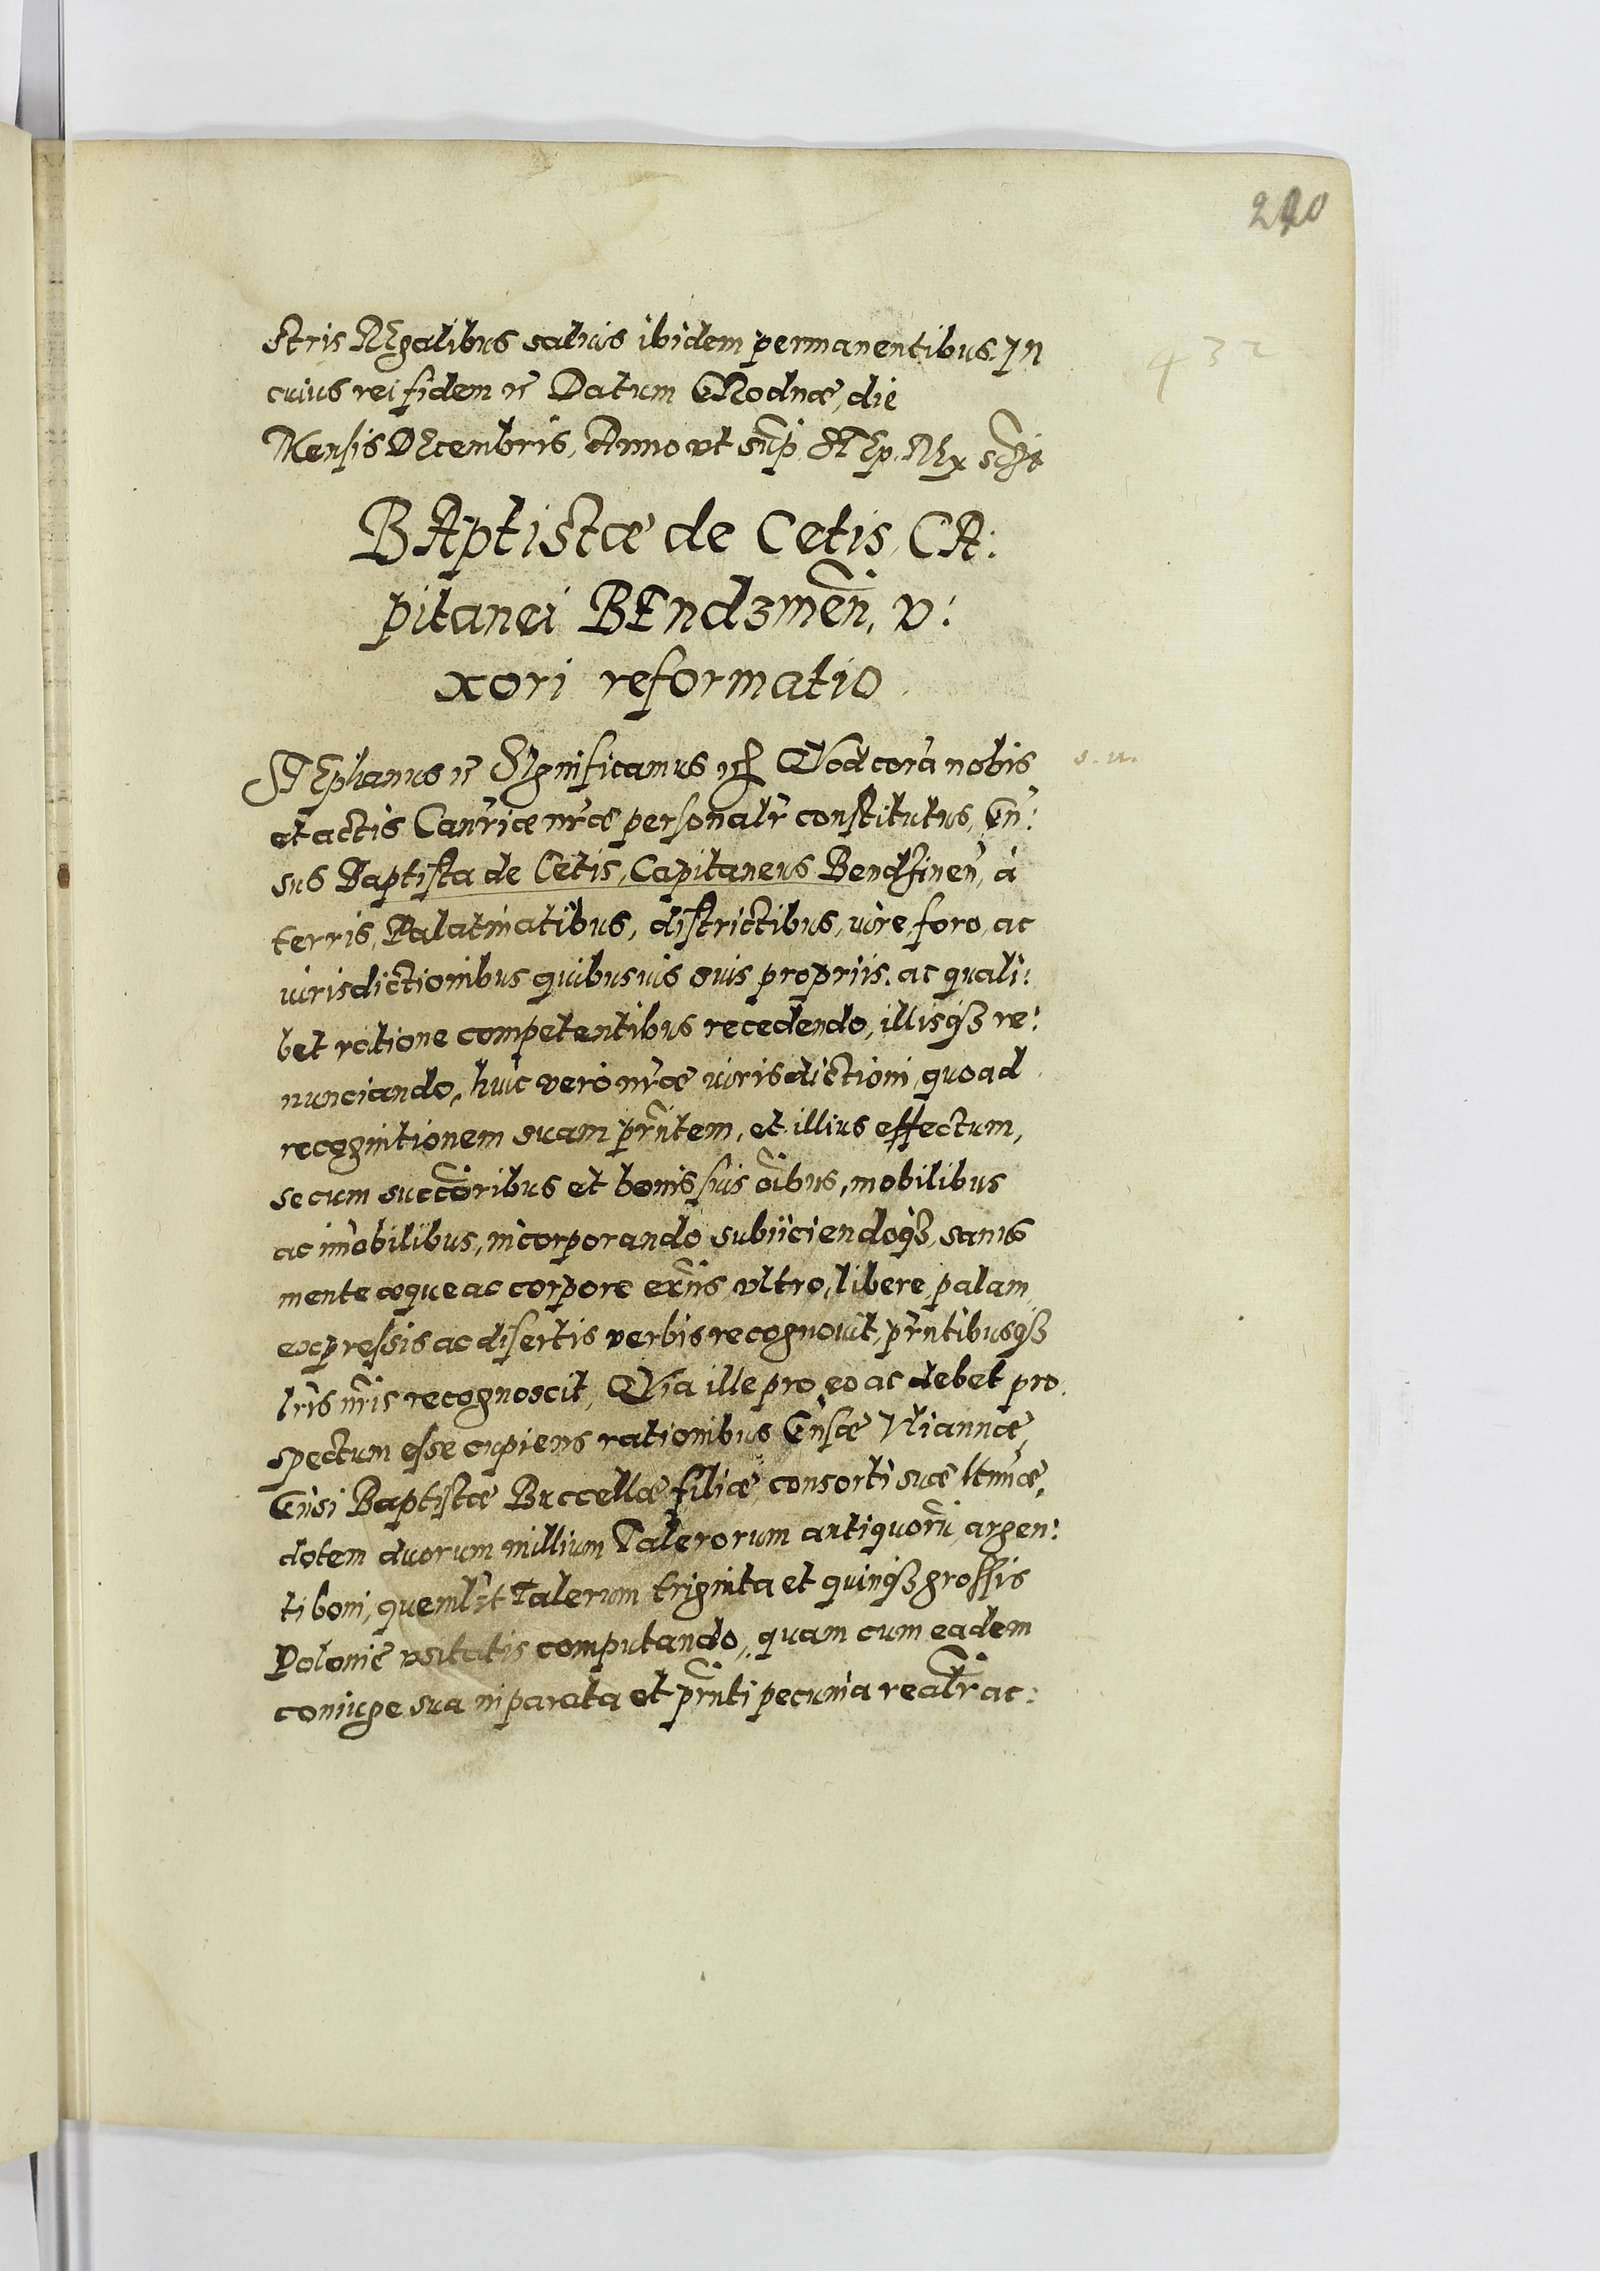 220
432
stris REgalibus saluis ibidem permanentibus. In
cuius rei fidem Datum GRodnæ, die
Mensis DEcembris, Anno vt sup̃. STEp. REx
BAptistæ de Cetis, CA:
pitanei BEndzmeñ, v:
xori reformatio
STEphanus SIgnificamus QVod corã nobis
s. u.
et actis Canr̃iæ nr̃æ personalr̃ constitutus, Gñ:
sus Baptista de Cetis, Capitaneus Bendzineñ, à
terris, Palatinatibus, districtibus, iure, foro, ac
iurisdictionibus quibusuis suis proprijs, ac quali:
bet ratione competentibus recedendo, illisqȝ re:
nunciando, huic vero nr̃æ iurisdictioni, quo ad
recognitionem suam pr̃ntem, et illius effectum,
se cum succõribus et bonis suis oĩbus, mobilibus
ac im̃obilibus, incorporando subijciendoqȝ, sanus
mente æque ac corpore exñs, vltro, libere, palam
expressis ac disertis verbis recognouit, pr̃ntibusqȝ
lr̃is nr̃is recognoscit, QVia ille pro eo ac debet pro
spectum esse cupiens rationibus Gñsæ Viannæ,
Gñsi Baptistæ Buccellæ filiæ, consorti suæ ltimæ,
dotem duorum millium Talerorum antiquorũ, argen:
ti boni, quemlr̃t Talerum triginta et quinqȝ grossis
Polonie vsitatis computando, quam cum eadem
coniuge sua in parata et pr̃nti pecunia realr̃ ac: